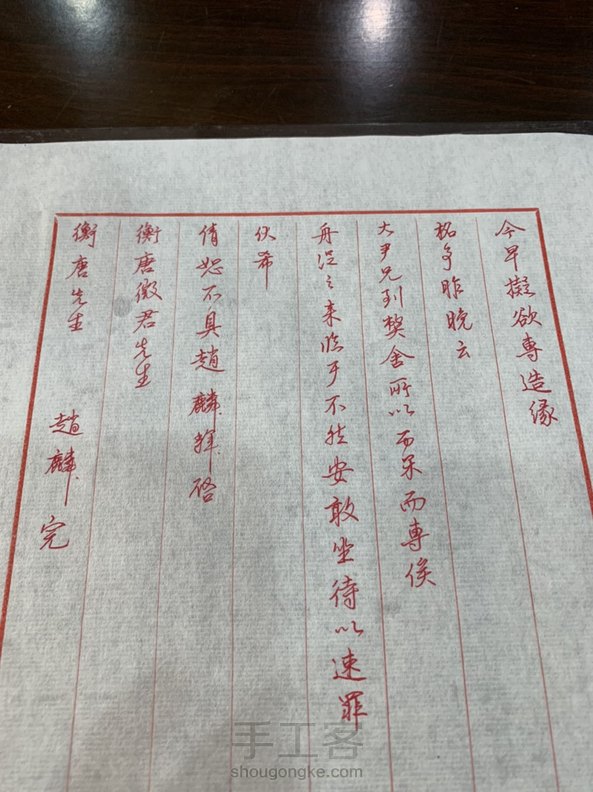 今早擬欲專造緣
昨晚云
大尹兄到獘舍所以而專俟
舟從之来臨乎不然安敢坐待以速罪
伏希
情恕不具趙麟拜啓
衡唐徵君先生
衡唐先生 趙麟 完
手工客
shougongke.com